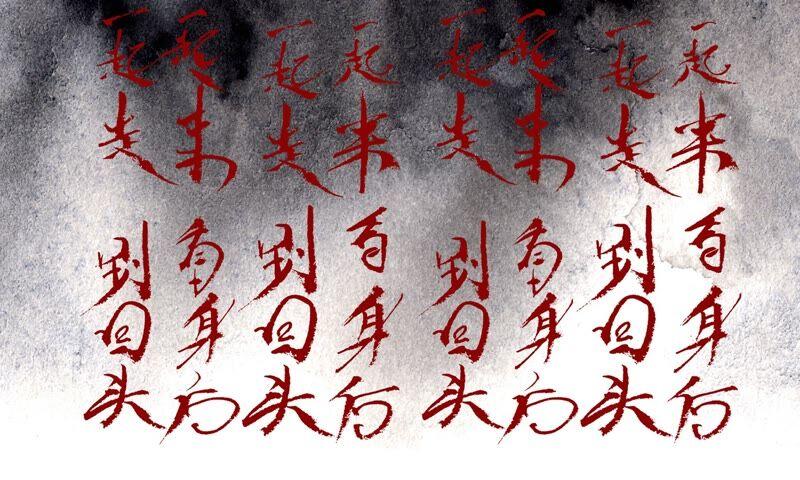 一起来
一起走
一起来
一起走
一起来
一起走
一起来
一起走
身后
别回头
身后
别回头
身后
别回头
身后
别回头